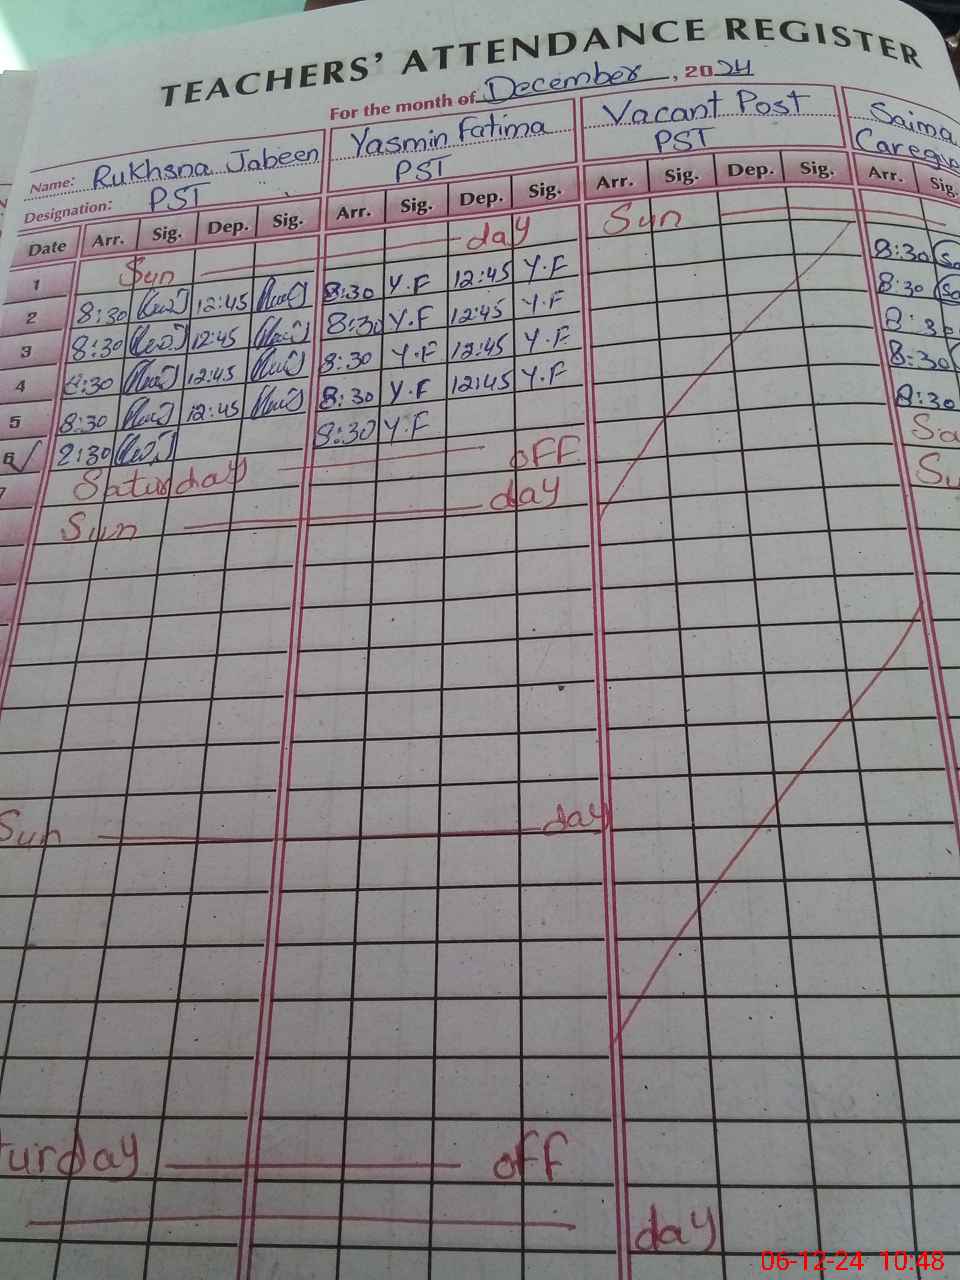 TEACHERS' ATTENDANCE REGISTER
For the month of December, 2024
Name: Rukhsna Jabeen Yasmin Fatima Vacant Post Saima
Designation: PST PST PST
Date Arr. Sig. Dep. Sig. Arr. Sig. Dep. Sig. Arr. Sig. Dep. Sig. Arr. Sig.
1 Sun day Sun
2 8:30 12:45 8:30 Y.F 12:45 Y.F 8:30
3 8:30 12:45 8:30 Y.F 12:45 Y.F 8:30
4 8:30 12:45 8:30 Y.F 12:45 Y.F 8:30
5 8:30 12:45 8:30 Y.F 12:45 Y.F 8:30
6 8:30 8:30 Y.F 8:30
7 Saturday off Sa
Sun day Su
Sun day
turday off
day
06-12-24 10:48